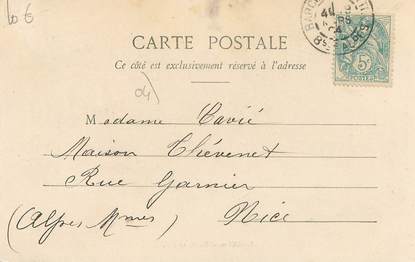 10 €
CARTE POSTALE
Ce côté est exclusivement réservé à l'adresse
04)
Madame Cavié
Maison Thévenet
Rue Garnier
(Alpes Mmes) Nice
5c